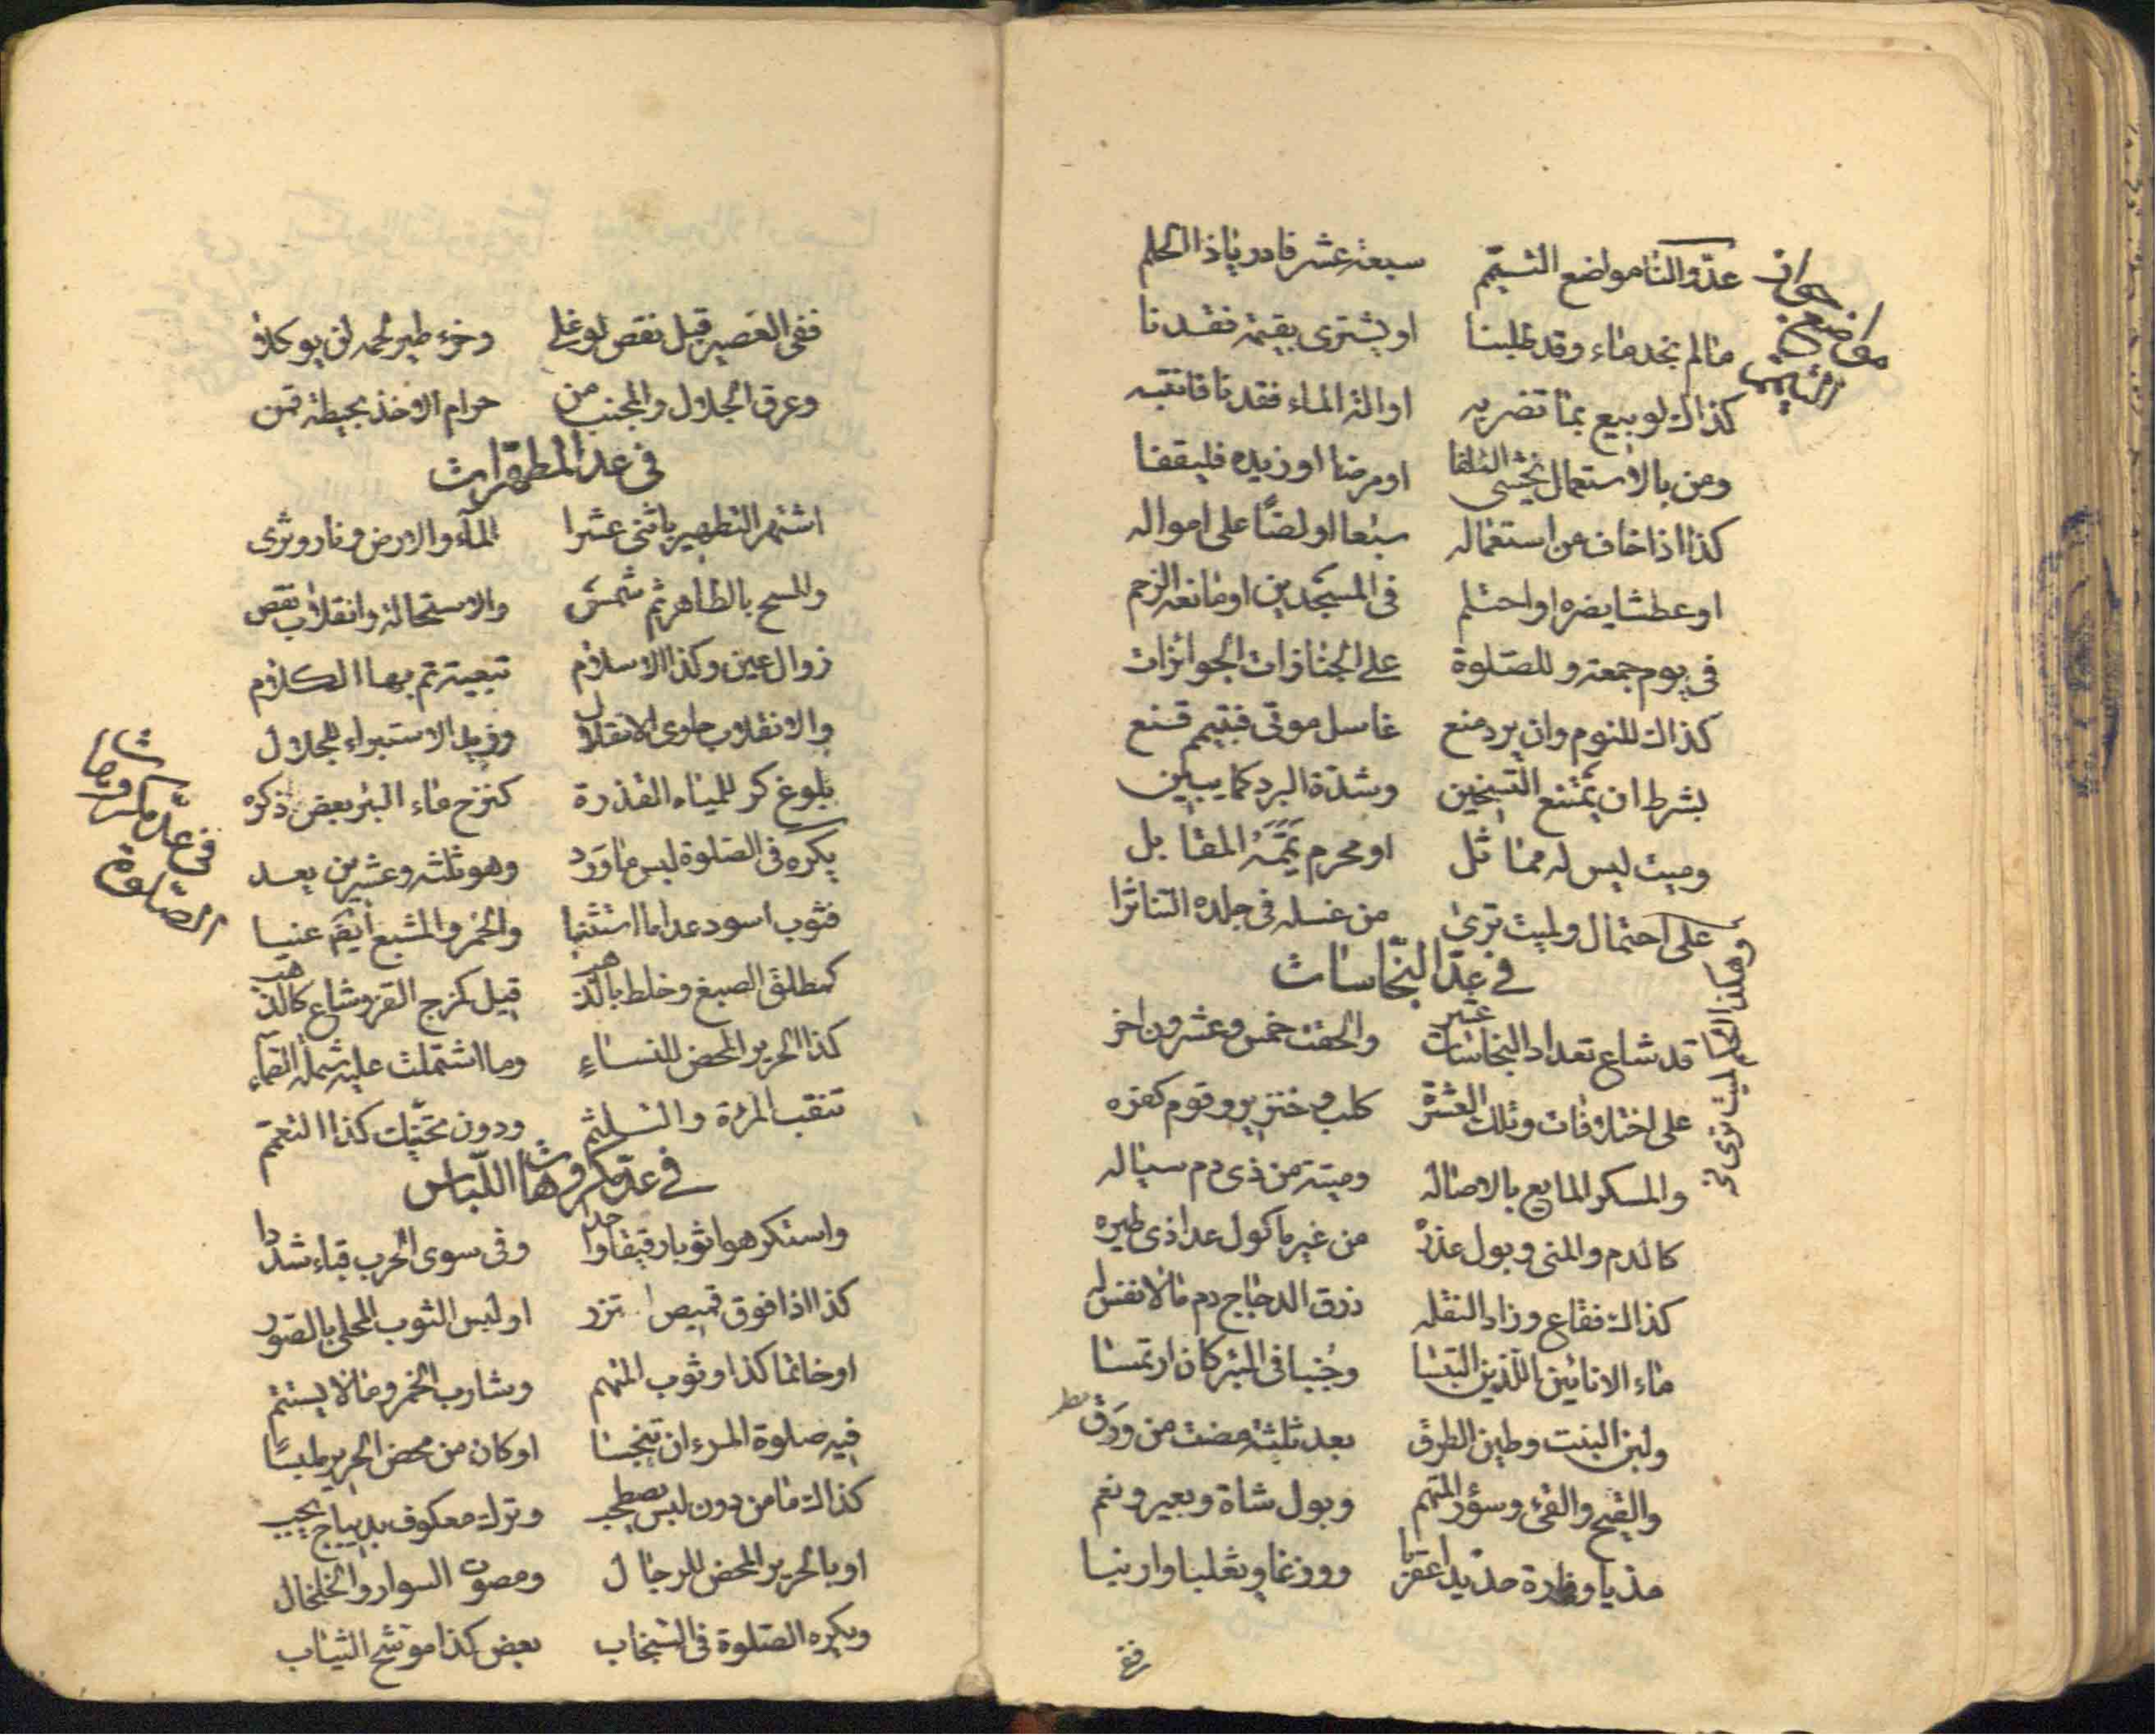 عدّوا لنا مواضع التيمّم سبعة عشر فادر ياذا الحلم
مواضع جواز التيمم
ما لم نجد ماء وقد طلبنا او يشترى بقيمة فقدنا
كذاك لو بيع بما تضربه او الة الماء فقدنا فانتبه
ومن بالاستعمال يخشى التلفا او مرضا او زيده فليقفا
كذا اذا خاف من استعماله سبعا او لصّا على امواله
او عطشا يضره او احتلم في المسجدين او مانعه الزحم
في يوم جمعة وللصّلوة على الجنازات الجوائزات
كذاك للنوم وان برد منع غاسل موتى فتيمم قنع
بشرط ان يمتنع التسخين وشدّة البرد كما يبين
وميت ليس له مماثل او محرم يَمَّمَهُ المقابل
على احتمال ولميت ترى من غسله في جلده التناثرا
في عدّ النجّاسات
قد شاع تعداد النجاسات عشر والحقت خمس وعشرون اخر
على اختلافات وتلك العشرة كلب وخنزير وقوم كفره
والمسكر المايع بالاصاله وميتة من ذى دم سياله
كالدم والمنى وبول عذره من غير ماكول عدا ذى طيره
كذاك فقاع وزاد النقله ذرق الدجاج دم مالا نفس له
ماء الانائين اللّذين التبسا وجُنبا في البئر كان ارتمسا
ولبن البنت وطين الطرق بعد ثلثة مضت من وَدَق
والقيح والقئ وسؤر المتهم وبول شاة وبعير ونعم
مذيا وفارة حديدا عقربا ووزغا وثعلبا وارنبا
ففى العصير قبل نقص لو غلى وخرء طير لحمه لن يوكلا
وعرق الجلال والمجنب من حرام الاخذ بحيطة قمن
في عد المطهّرات
اشتهر التطهير باثنى عشرا الماء والارض ونار وثرى
والمسح بالطاهر ثم شمس والاستحالة وانقلاب نقص
زوال عين وكذا الاسلام تبعية تم بها الكلام
والانقلاب حاوى الانتقال وزيد الاستبراء للجلال
بلوغ كر للمياه القذرة كنزح ماء البئر بعض ذكره
في عدّ مكروهات الصّلوة
يكره في الصّلوة لبس ما وَرَد وهو ثلثه وعشرين يعد
فثوب اسود عدا ما استثنيا والخمر والمشبع ايضا عنيا
كمطلق الصبغ وخلط بالذهب قيل كزج القز وشاع كالذهب
كذا الحرير المحض للنساء وما اشتملت عليه شملة الصماء
تنقب المرئة والتلثم ودون تحنيك كذا التعمّم
في عدّ مكروهات اللّباس
واستكرهوا ثوبا رقيقا واحدا وفى سوى الحرب قباء شدّدا
كذا اذا فوق قميص اتزر او لبس الثوب المحلى بالصّور
او خاتما كذا وثوب المتهم وشارب الخمر ومالا يستتم
فيه صلوة المرء ان تنجسا او كان من محض الحرير ملبسًا
كذاك ما من دون لبس يصطحب وترك معكوف بديباج يجب
او بالحرير المحض للرجال ومصوت السوار والخلخال
ويكره الصّلوة في السّنجاب بعض كذا موشح الثياب